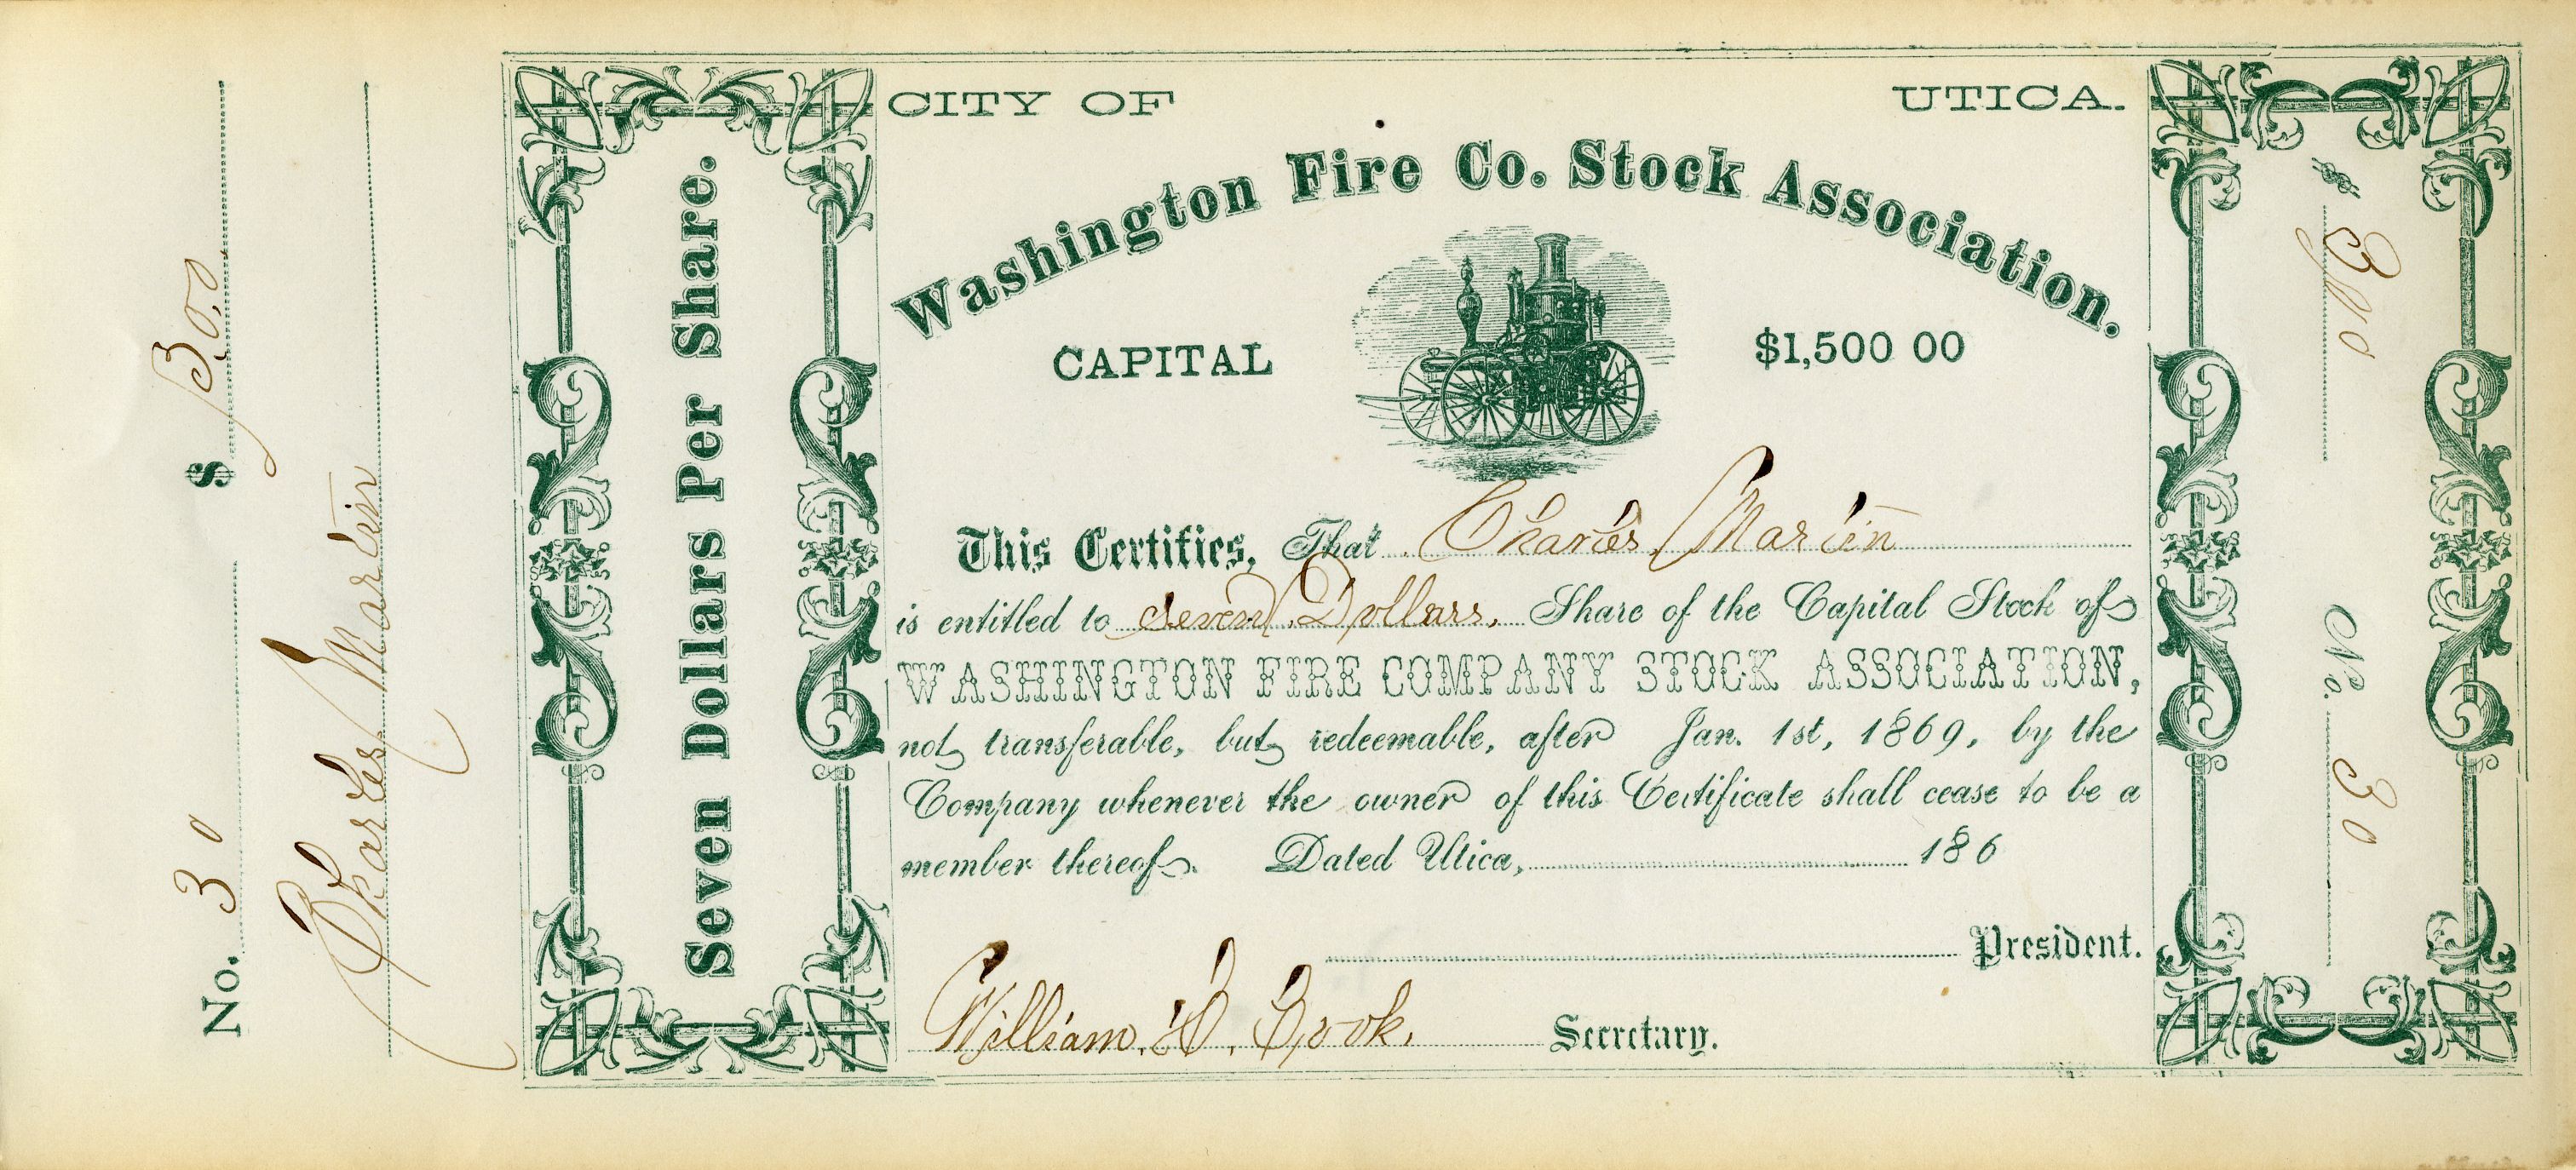 No. 30 $ 3.00
Charles Martin
Seven Dollars Per Share.
CITY OF UTICA.
Washington Fire Co. Stock Association.
CAPITAL $1,500 00
This Certifies, That Charles Martin
is entitled to seven Dollars. Share of the Capital Stock of
WASHINGTON FIRE COMPANY STOCK ASSOCIATION,
not transferable, but redeemable, after Jan. 1st, 1869, by the
Company whenever the owner of this Certificate shall cease to be a
member thereof. Dated Utica, 186
President.
William. H. Brook. Secretary.
$ 300
No. 30